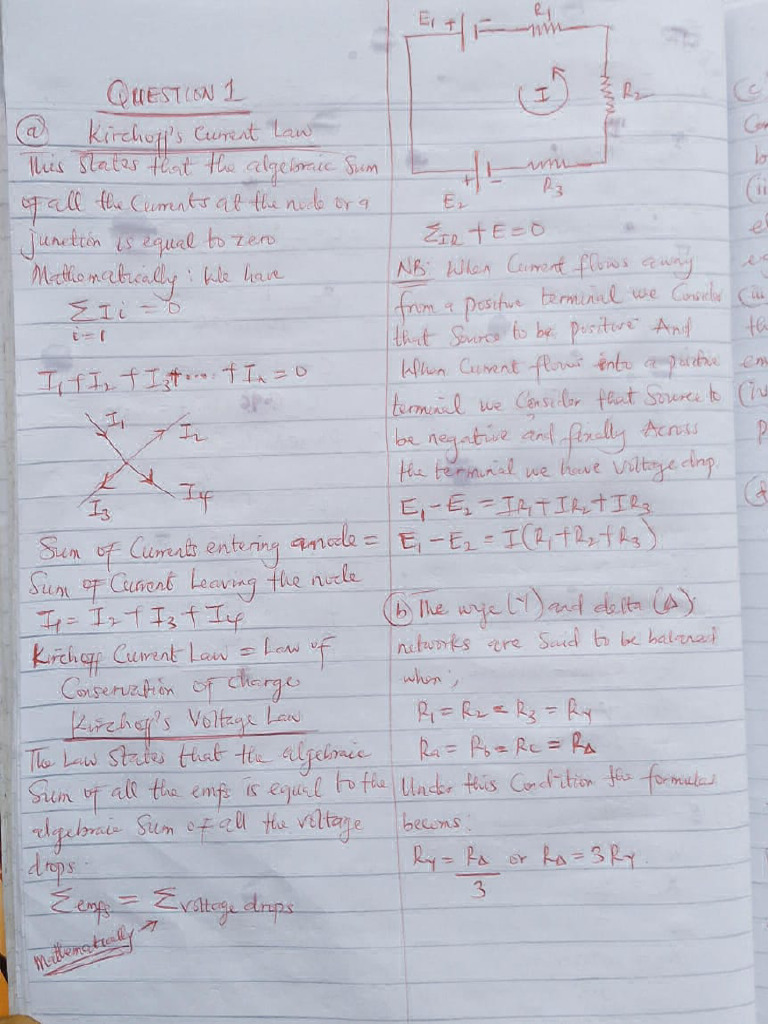 QUESTION 1
(a) Kirchoff's Current Law
This states that the algebraic Sum
of all the Currents at the node or a
junction is equal to zero
Mathematically: We have
ΣIi = 0
i=1
I1 + I2 + I3 + .... + In = 0
I1
I2
I3
I4
Sum of Currents entering a node =
Sum of Current Leaving the node
I1 = I2 + I3 + I4
Kirchoff Current Law = Law of
Conservation of charge
Kirchoff's Voltage Law
The Law States that the algebraic
Sum of all the emfs is equal to the
algebraic Sum of all the voltage
drops.
Σemfs = Σvoltage drops
Mathematically
E1 + - R1
I
R2
+ -
E2 R3
ΣIR + E = 0
NB: When Current flows away
from a positive terminal we Consider
that Source to be positive And
When Current flows into a positive
terminal we Consider that Source to
be negative and finally Across
the terminal we have voltage drop.
E1 - E2 = IR1 + IR2 + IR3
E1 - E2 = I(R1 + R2 + R3)
(b) The wye (Y) and delta (Δ)
networks are Said to be balanced
when;
R1 = R2 = R3 = RY
Ra = Rb = Rc = RΔ
Under this Condition the formulas
becoms:
RY = RΔ/3 or RΔ = 3RY.